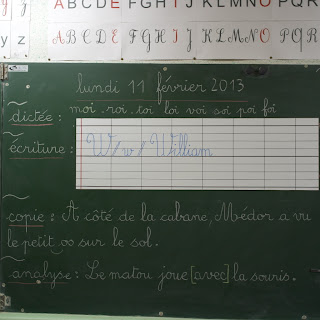 ABCDEFGHIJKLMNOPQR
y z
ABCDEFGHIJKLMNOPQR
lundi 11 février 2013
moi roi toi loi voi soi poi foi
dictée :
écriture : W/w/William
copie : A côté de la cabane, Médor a vu
le petit os sur le sol.
analyse : Le matou joue [avec] la souris.